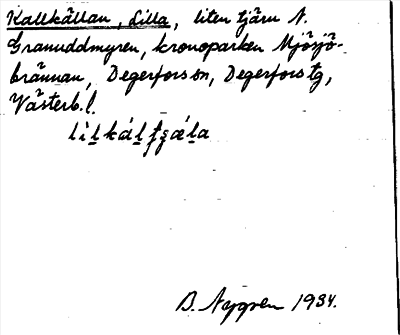 Kallkällan, Lilla, liten tjärn N.
Granuddmyren, kronoparken Mjösjö-
brännan, Degerfors sn, Degerfors tg,
Västerb. l.
B. Nygren 1934.